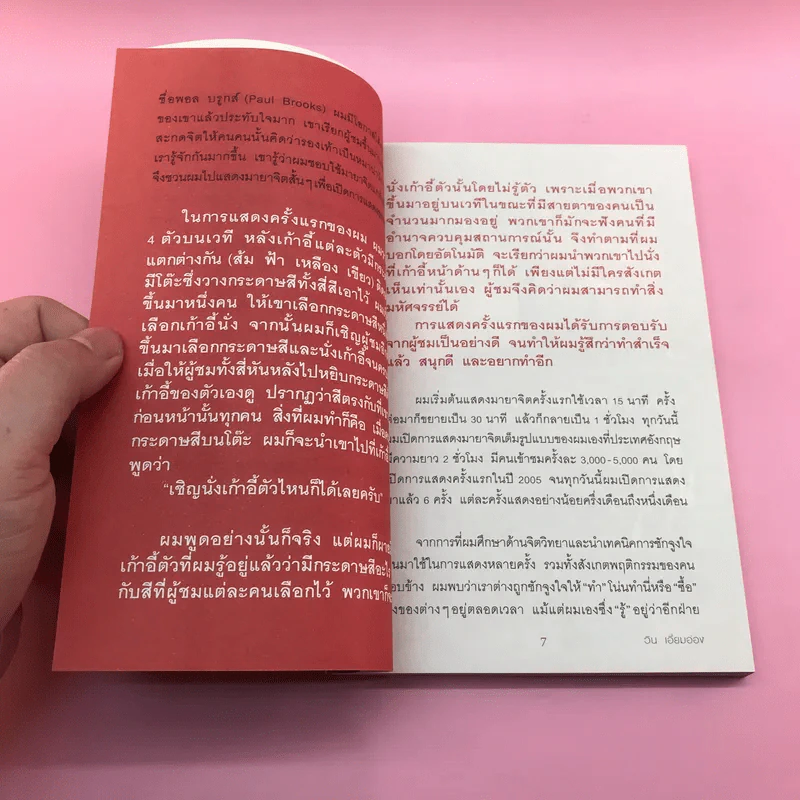 ชื่อพอล บรูกส์ (Paul Brooks) ผมมีโอกาสได้
ของเขาแล้วประทับใจมาก เขาเรียกผู้ชมขึ้นมา
สะกดจิตให้คนคนนั้นคิดว่ารองเท้าเป็นหมา
เรารู้จักกันมากขึ้น เขารู้ว่าผมชอบใช้มายาจิต
จึงชวนผมไปแสดงมายาจิตสั้นๆ เพื่อเปิดการแสดง
ในการแสดงครั้งแรกของผม
4 ตัวบนเวที หลังเก้าอี้แต่ละตัวมี
แตกต่างกัน (ส้ม ฟ้า เหลือง เขียว)
มีโต๊ะซึ่งวางกระดาษสีทั้งสี่สีเอาไว้
ขึ้นมาหนึ่งคน ให้เขาเลือกกระดาษสี
เลือกเก้าอี้นั่ง จากนั้นผมก็เชิญผู้ชม
ขึ้นมาเลือกกระดาษสีและนั่งเก้าอี้จน
เมื่อให้ผู้ชมทั้งสี่หันหลังไปหยิบกระดาษ
เก้าอี้ของตัวเองดู ปรากฏว่าสีตรงกับที่
ก่อนหน้านั้นทุกคน สิ่งที่ผมทำก็คือ เมื่อ
กระดาษสีบนโต๊ะ ผมก็จะนำเขาไปที่เก้าอี้
พูดว่า
“เชิญนั่งเก้าอี้ตัวไหนก็ได้เลยครับ”
ผมพูดอย่างนั้นก็จริง แต่ผมก็ผาย
เก้าอี้ตัวที่ผมรู้อยู่แล้วว่ามีกระดาษสีอะไร
กับสีที่ผู้ชมแต่ละคนเลือกไว้ พวกเขาก็
นั่งเก้าอี้ตัวนั้นโดยไม่รู้ตัว เพราะเมื่อพวกเขา
ขึ้นมาอยู่บนเวทีในขณะที่มีสายตาของคนเป็น
จำนวนมากมองอยู่ พวกเขาก็มักจะฟังคนที่มี
อำนาจควบคุมสถานการณ์นั้น จึงทำตามที่ผม
บอกโดยอัตโนมัติ จะเรียกว่าผมนำพวกเขาไปนั่ง
ที่เก้าอี้หน้าด้านๆ ก็ได้ เพียงแต่ไม่มีใครสังเกต
เห็นเท่านั้นเอง ผู้ชมจึงคิดว่าผมสามารถทำสิ่ง
มหัศจรรย์ได้
การแสดงครั้งแรกของผมได้รับการตอบรับ
จากผู้ชมเป็นอย่างดี จนทำให้ผมรู้สึกว่าทำสำเร็จ
แล้ว สนุกดี และอยากทำอีก
ผมเริ่มต้นแสดงมายาจิตครั้งแรกใช้เวลา 15 นาที ครั้ง
ต่อมาก็ขยายเป็น 30 นาที แล้วก็กลายเป็น 1 ชั่วโมง ทุกวันนี้
ผมเปิดการแสดงมายาจิตเต็มรูปแบบของผมเองที่ประเทศอังกฤษ
มีความยาว 2 ชั่วโมง มีคนเข้าชมครั้งละ 3,000-5,000 คน โดย
เปิดการแสดงครั้งแรกในปี 2005 จนทุกวันนี้ผมเปิดการแสดง
มาแล้ว 6 ครั้ง แต่ละครั้งแสดงอย่างน้อยครึ่งเดือนถึงหนึ่งเดือน
จากการที่ผมศึกษาด้านจิตวิทยาและนำเทคนิคการชักจูงใจ
คนมาใช้ในการแสดงหลายครั้ง รวมทั้งสังเกตพฤติกรรมของคน
รอบข้าง ผมพบว่าเราต่างถูกชักจูงใจให้ “ทำ” โน่นทำนี่หรือ “ซื้อ”
สิ่งของต่างๆ อยู่ตลอดเวลา แม้แต่ผมเองซึ่ง “รู้” อยู่ว่าอีกฝ่าย
7
วิน เอี่ยมอ่อง